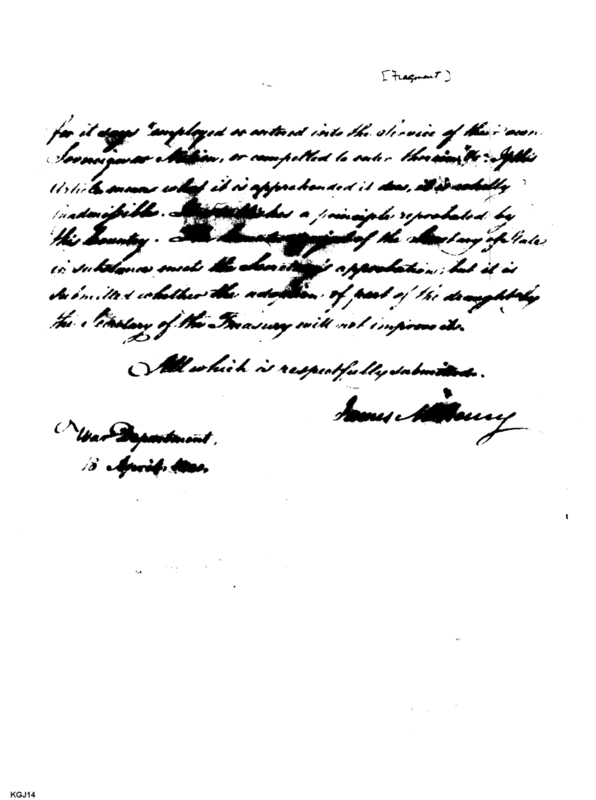 [Fragment]
for it says "employed or entered into the Service of their own
Sovereign or Nation, or compelled to enter therein" &c. If this
Article means what it is apprehended it does, it is wholly
inadmissible. a principle reprobated by
this Country. The of the Secretary of State
in substance meets the Secretary's approbation; but it is
submitted whether the adoption of part of the draught by
the Secretary of the Treasury will not improve it.
All which is respectfully submitted.
James McHenry
War Department,
18 April
KGJ14